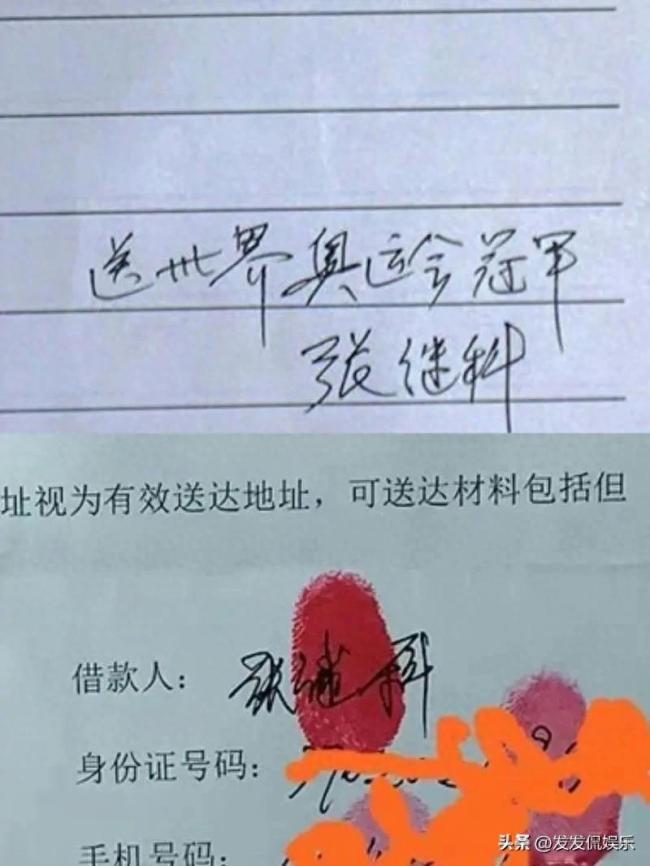 送世界奥运会冠军
张继科
址视为有效送达地址，可送达材料包括但
借款人：张继科
身份证号码：
手机号码：
头条 @发发侃娱乐